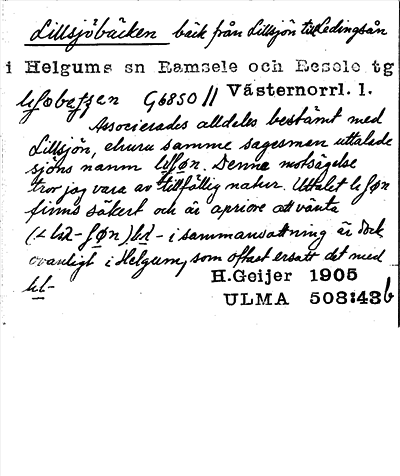 Lillsjöbäcken bäck från Lillsjön till Ledingsån
i Helgums sn Ramsele och Resele tg
G6850 // Västernorrl. l.
Associerades alldeles bestämt med
Lillsjön, ehuru samme sagesman uttalade
sjöns namn. Denna motsägelse
tror jag vara av tillfällig natur. Uttalet
finns säkert och är apriore att vänta
- i sammansättning är dock
ovanligt i Helgum, som oftast ersatt det med
H.Geijer 1905
ULMA 508:43b